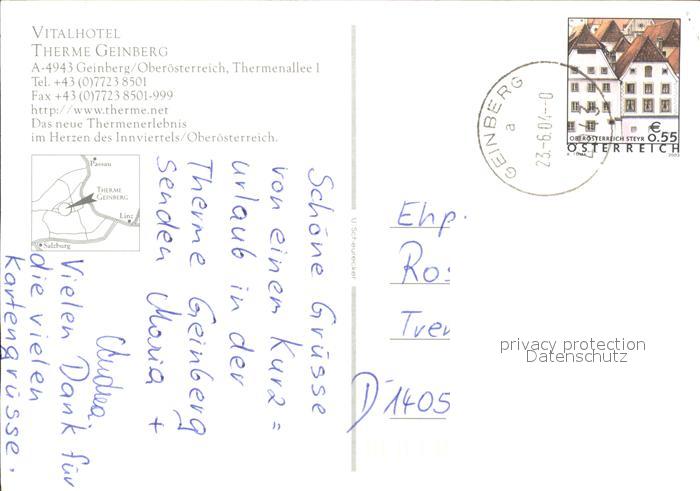 VITALHOTEL
THERME GEINBERG
A-4943 Geinberg/Oberösterreich, Thermenallee 1
Tel. +43 (0)7723 8501
Fax +43 (0)7723 8501-999
http://www.therme.net
Das neue Thermenerlebnis
im Herzen des Innviertels/Oberösterreich.
Passau
THERME
GEINBERG
Linz
Salzburg
Schöne Grüsse
von einem Kurz=
urlaub in der
Therme Geinberg
senden Maria +
Andrea.
Vielen Dank für
die vielen
Kartengrüsse.
GEINBERG
a
23.-6.04--0
€
0.55
OBERÖSTERREICH STEYR
ÖSTERREICH
2003
Ehp.
Ro
Tre
D 1405
privacy protection
Datenschutz